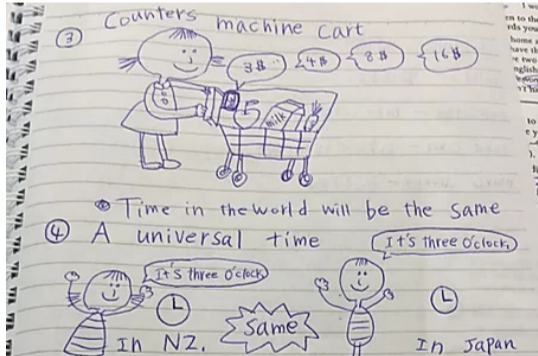 ③ Counters machine cart
3$ 4$ 8$ 16$
milk
Time in the world will be the same
④ A universal time
It's three o'clock,
It's three o'clock,
Same
In NZ.
In Japan